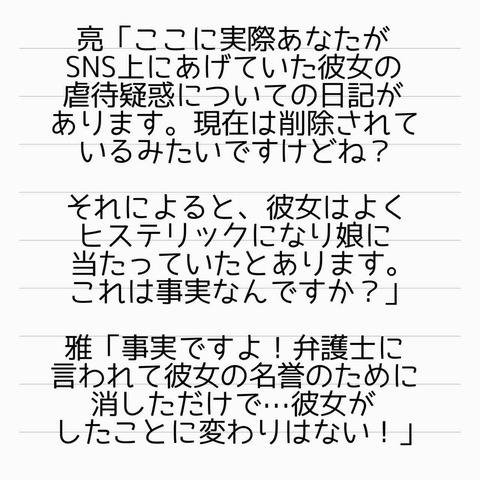 亮「ここに実際あなたが
SNS上にあげていた彼女の
虐待疑惑についての日記が
あります。現在は削除されて
いるみたいですけどね？
それによると、彼女はよく
ヒステリックになり娘に
当たっていたとあります。
これは事実なんですか？」
雅「事実ですよ！弁護士に
言われて彼女の名誉のために
消しただけで…彼女が
したことに変わりはない！」